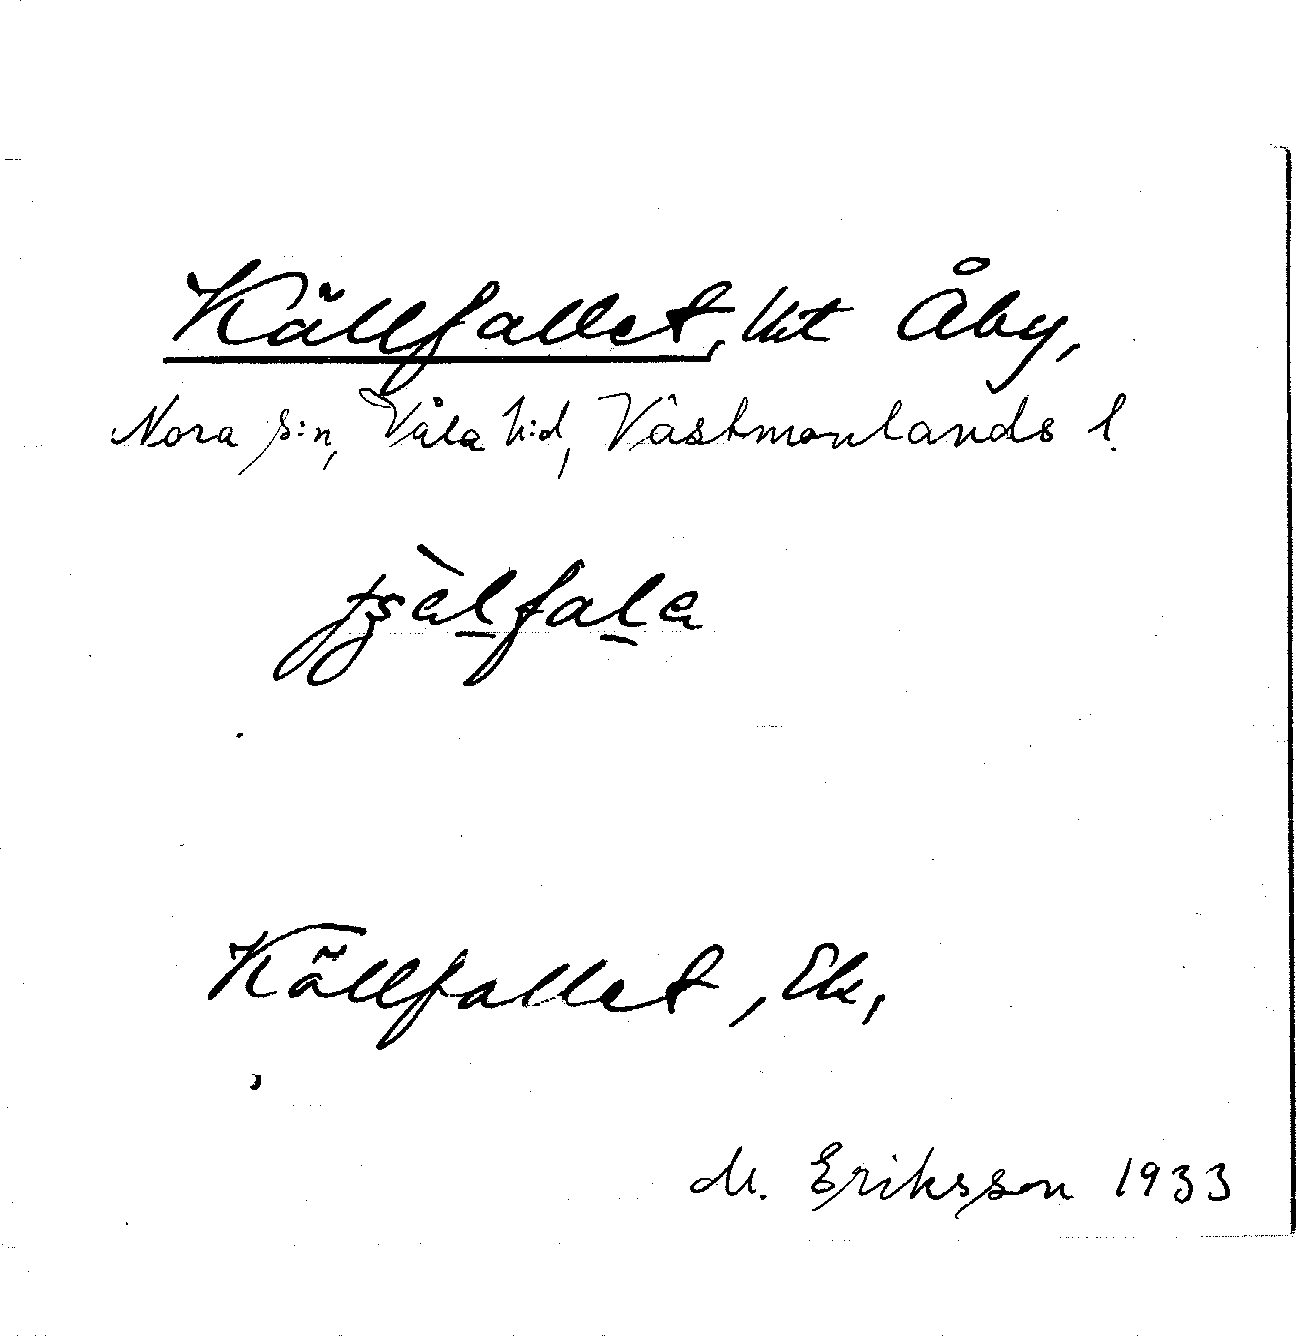 Källfallet, Åby,
Nora s:n, Våla h:d, Västmanlands l.
Källfallet, Ek,
M. Eriksson 1933